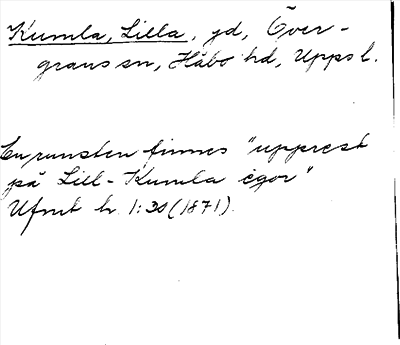 Kumla, Lilla, gd, Över-
grans sn, Håbo hd, Upps l.
En runsten finnes "upprest
på Lill-Kumla egor"
Ufmt h. 1:30 (1871).